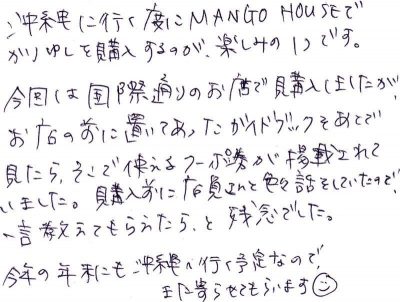 沖縄に行く度にMANGO HOUSEで
かりゆしを購入するのが、楽しみの1つです。
今回は国際通りのお店で購入しましたが
お店の前に置いてあったガイドブックをあとで
見たら、そこで使えるクーポン券が掲載されて
いました。購入前に店員さんと色々話をしていたので、
一言教えてもらえたら、と残念でした。
今年の年末にも沖縄へ行く予定なので、
また寄らせてもらいます